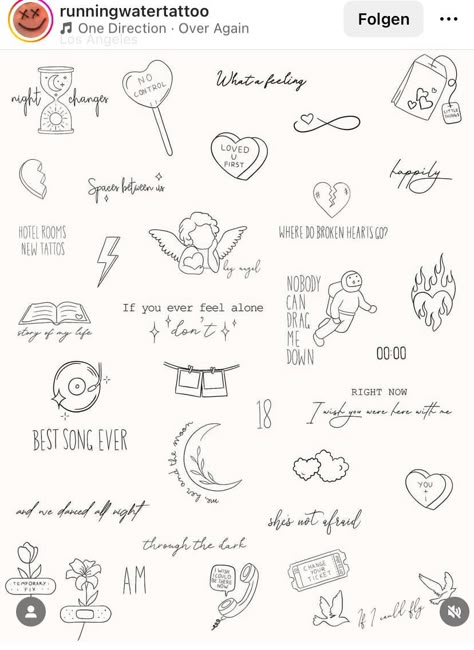 runningwatertattoo
One Direction · Over Again
Los Angeles
Folgen
night changes
NO
CONTROL
What a feeling
LITTLE
THINGS
LOVED
U
FIRST
happily
Spaces between us
HOTEL ROOMS
NEW TATTOS
WHERE DO BROKEN HEARTS GO?
hey angel
story of my life
If you ever feel alone
don't
NOBODY
CAN
DRAG
ME
DOWN
00:00
BEST SONG EVER
18
RIGHT NOW
I wish you were here with me
me, her and the moon
YOU
+
I
and we danced all night
she's not afraid
through the dark
TEMPORARY
FIX
AM
I WISH
I COULD
BE THERE
NOW
CHANGE
YOUR
TICKET
If I could fly